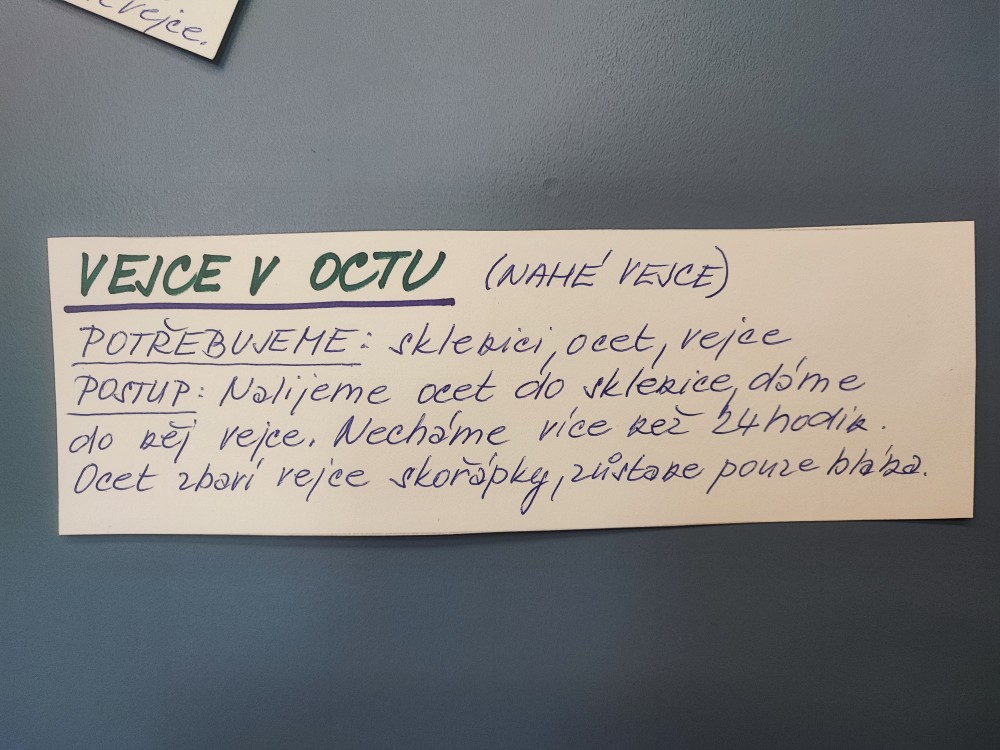 vejce.
VEJCE V OCTU (NAHÉ VEJCE)
POTŘEBUJEME: sklenici, ocet, vejce
POSTUP: Nalijeme ocet do sklenice, dáme
do něj vejce. Necháme více než 24 hodin.
Ocet zbaví vejce skořápky, zůstane pouze blána.